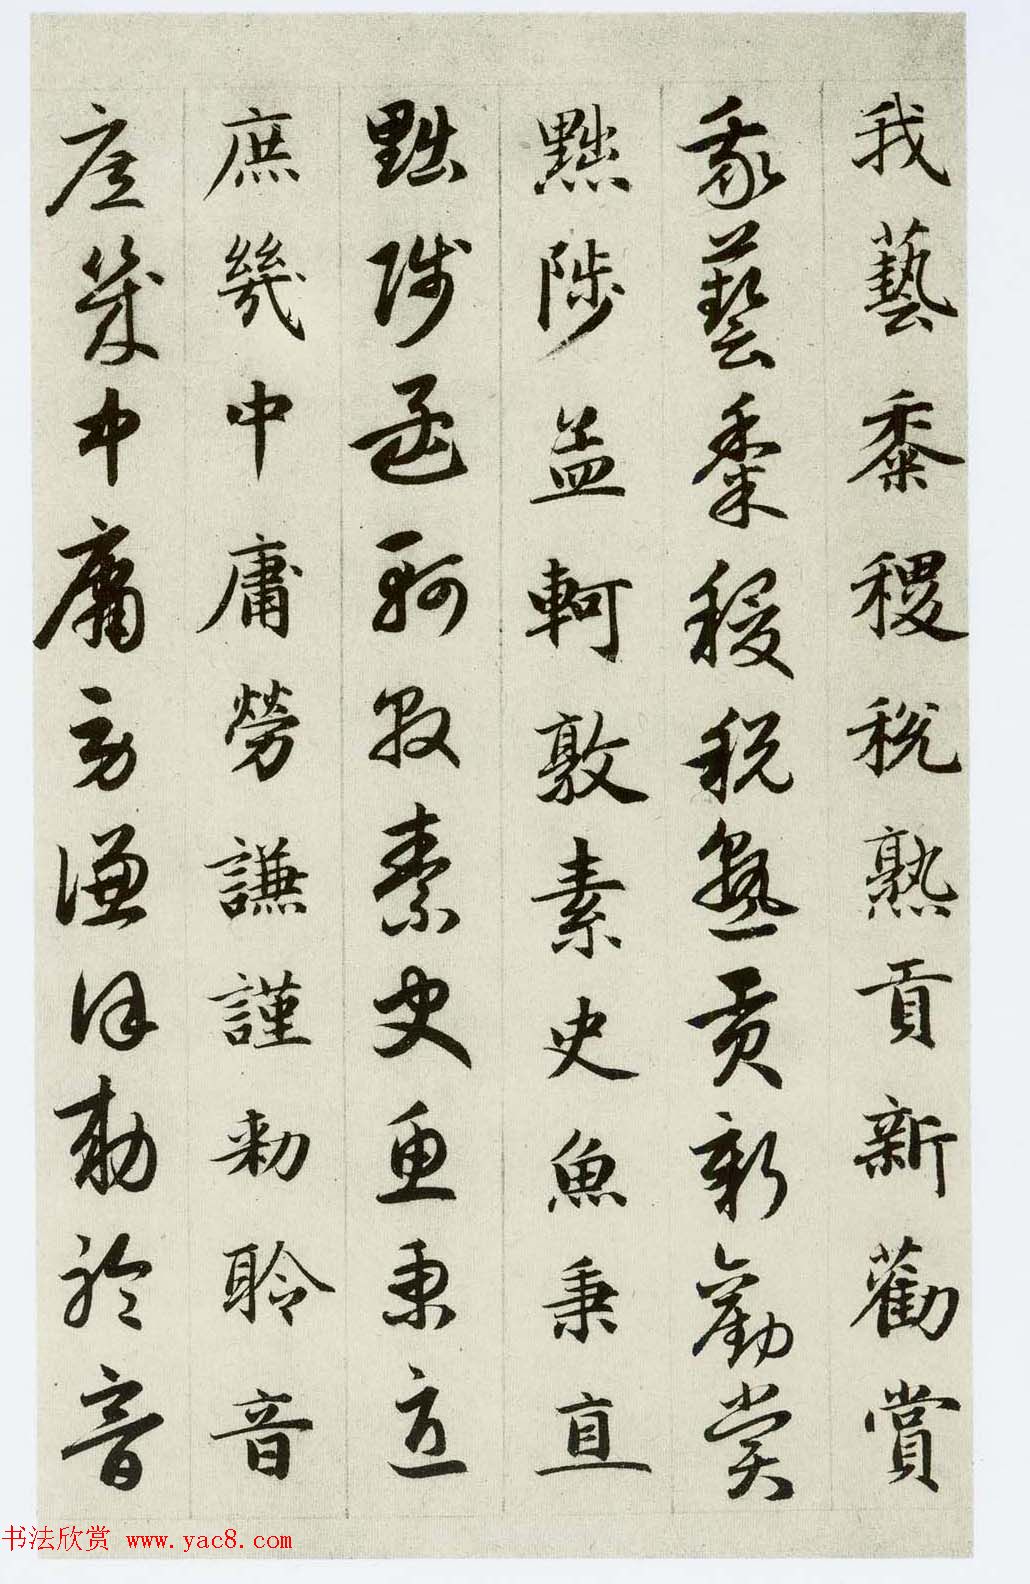 我藝黍稷稅熟貢新勸賞
我藝黍稷稅熟貢新勸賞
黜陟孟軻敦素史魚秉直
黜陟孟軻敦素史魚秉直
庶幾中庸勞謙謹勑聆音
庶幾中庸勞謙謹勑聆音
书法欣赏 www.yac8.com